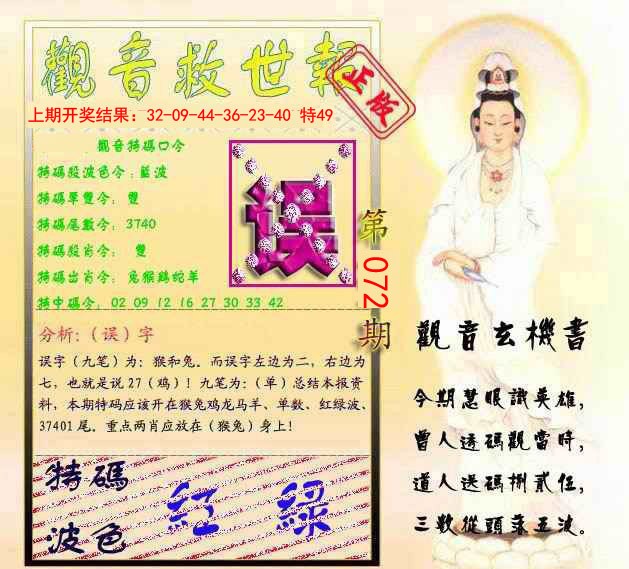 觀音救世報
正版
上期开奖结果：32-09-44-36-23-40 特49
觀音特碼口令
特碼段波色令：藍波
特碼單雙令： 雙
特碼尾數令：3740
特碼段肖令： 雙
特碼出肖令：兔猴鷄蛇羊
特中碼令：02 09 12 16 27 30 33 42
误
第072期
分析：（误）字
误字（九笔）为：猴和兔。而误字左边为二，右边为
七，也就是说27（鸡）！九笔为：（单）总结本报资
料，本期特码应该开在猴兔鸡龙马羊、单数、红绿波、
37401尾。重点两肖应放在（猴兔）身上！
特碼
波色
紅 綠
觀音玄機書
今期慧眼識英雄，
曾人透碼觀當時，
道人送碼捌貳伍，
三數從頭落五波。